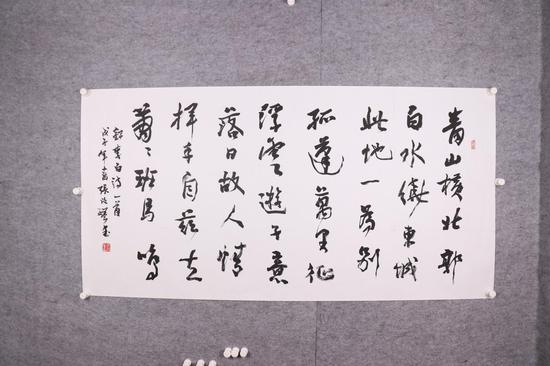 青山横北郭
白水绕东城
此地一为别
孤蓬万里征
浮云游子意
落日故人情
挥手自兹去
萧〻班马鸣
录李白诗一首
戊子年